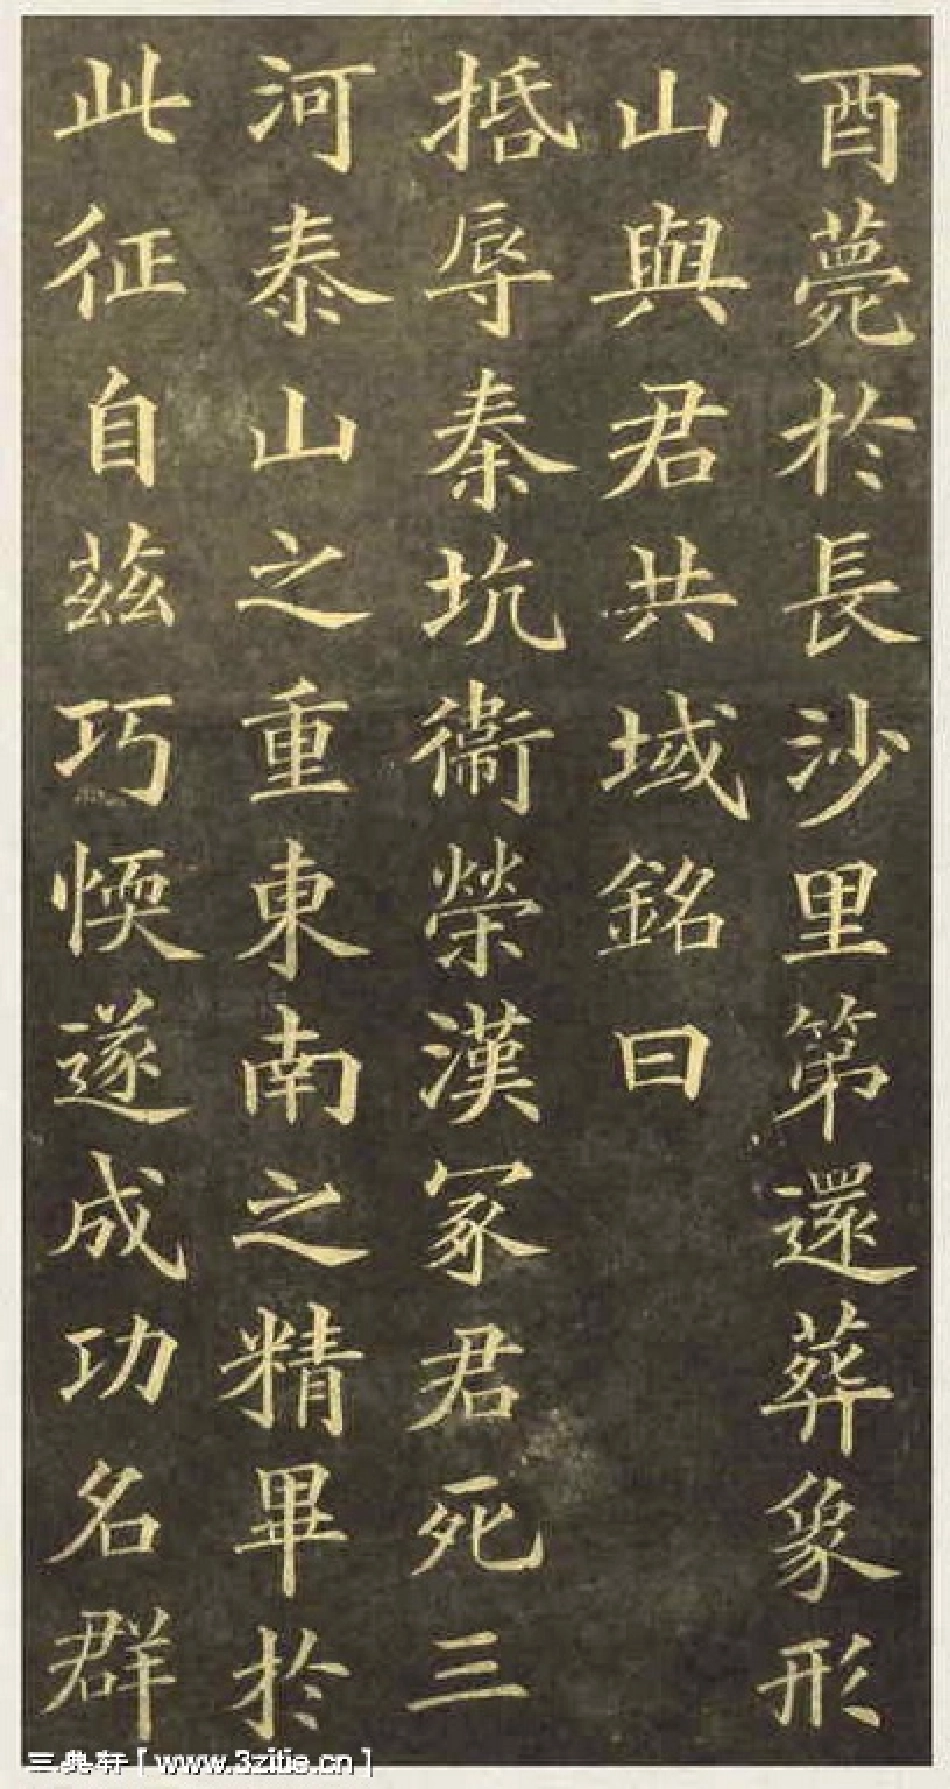 酉薨於長沙里第還葬象形
山與君共域銘曰
抵辱秦坑衞榮漢冢君死三
河泰山之重東南之精畢於
此征自茲巧愞遂成功名群
三典轩 [ www.3zitie.cn ]